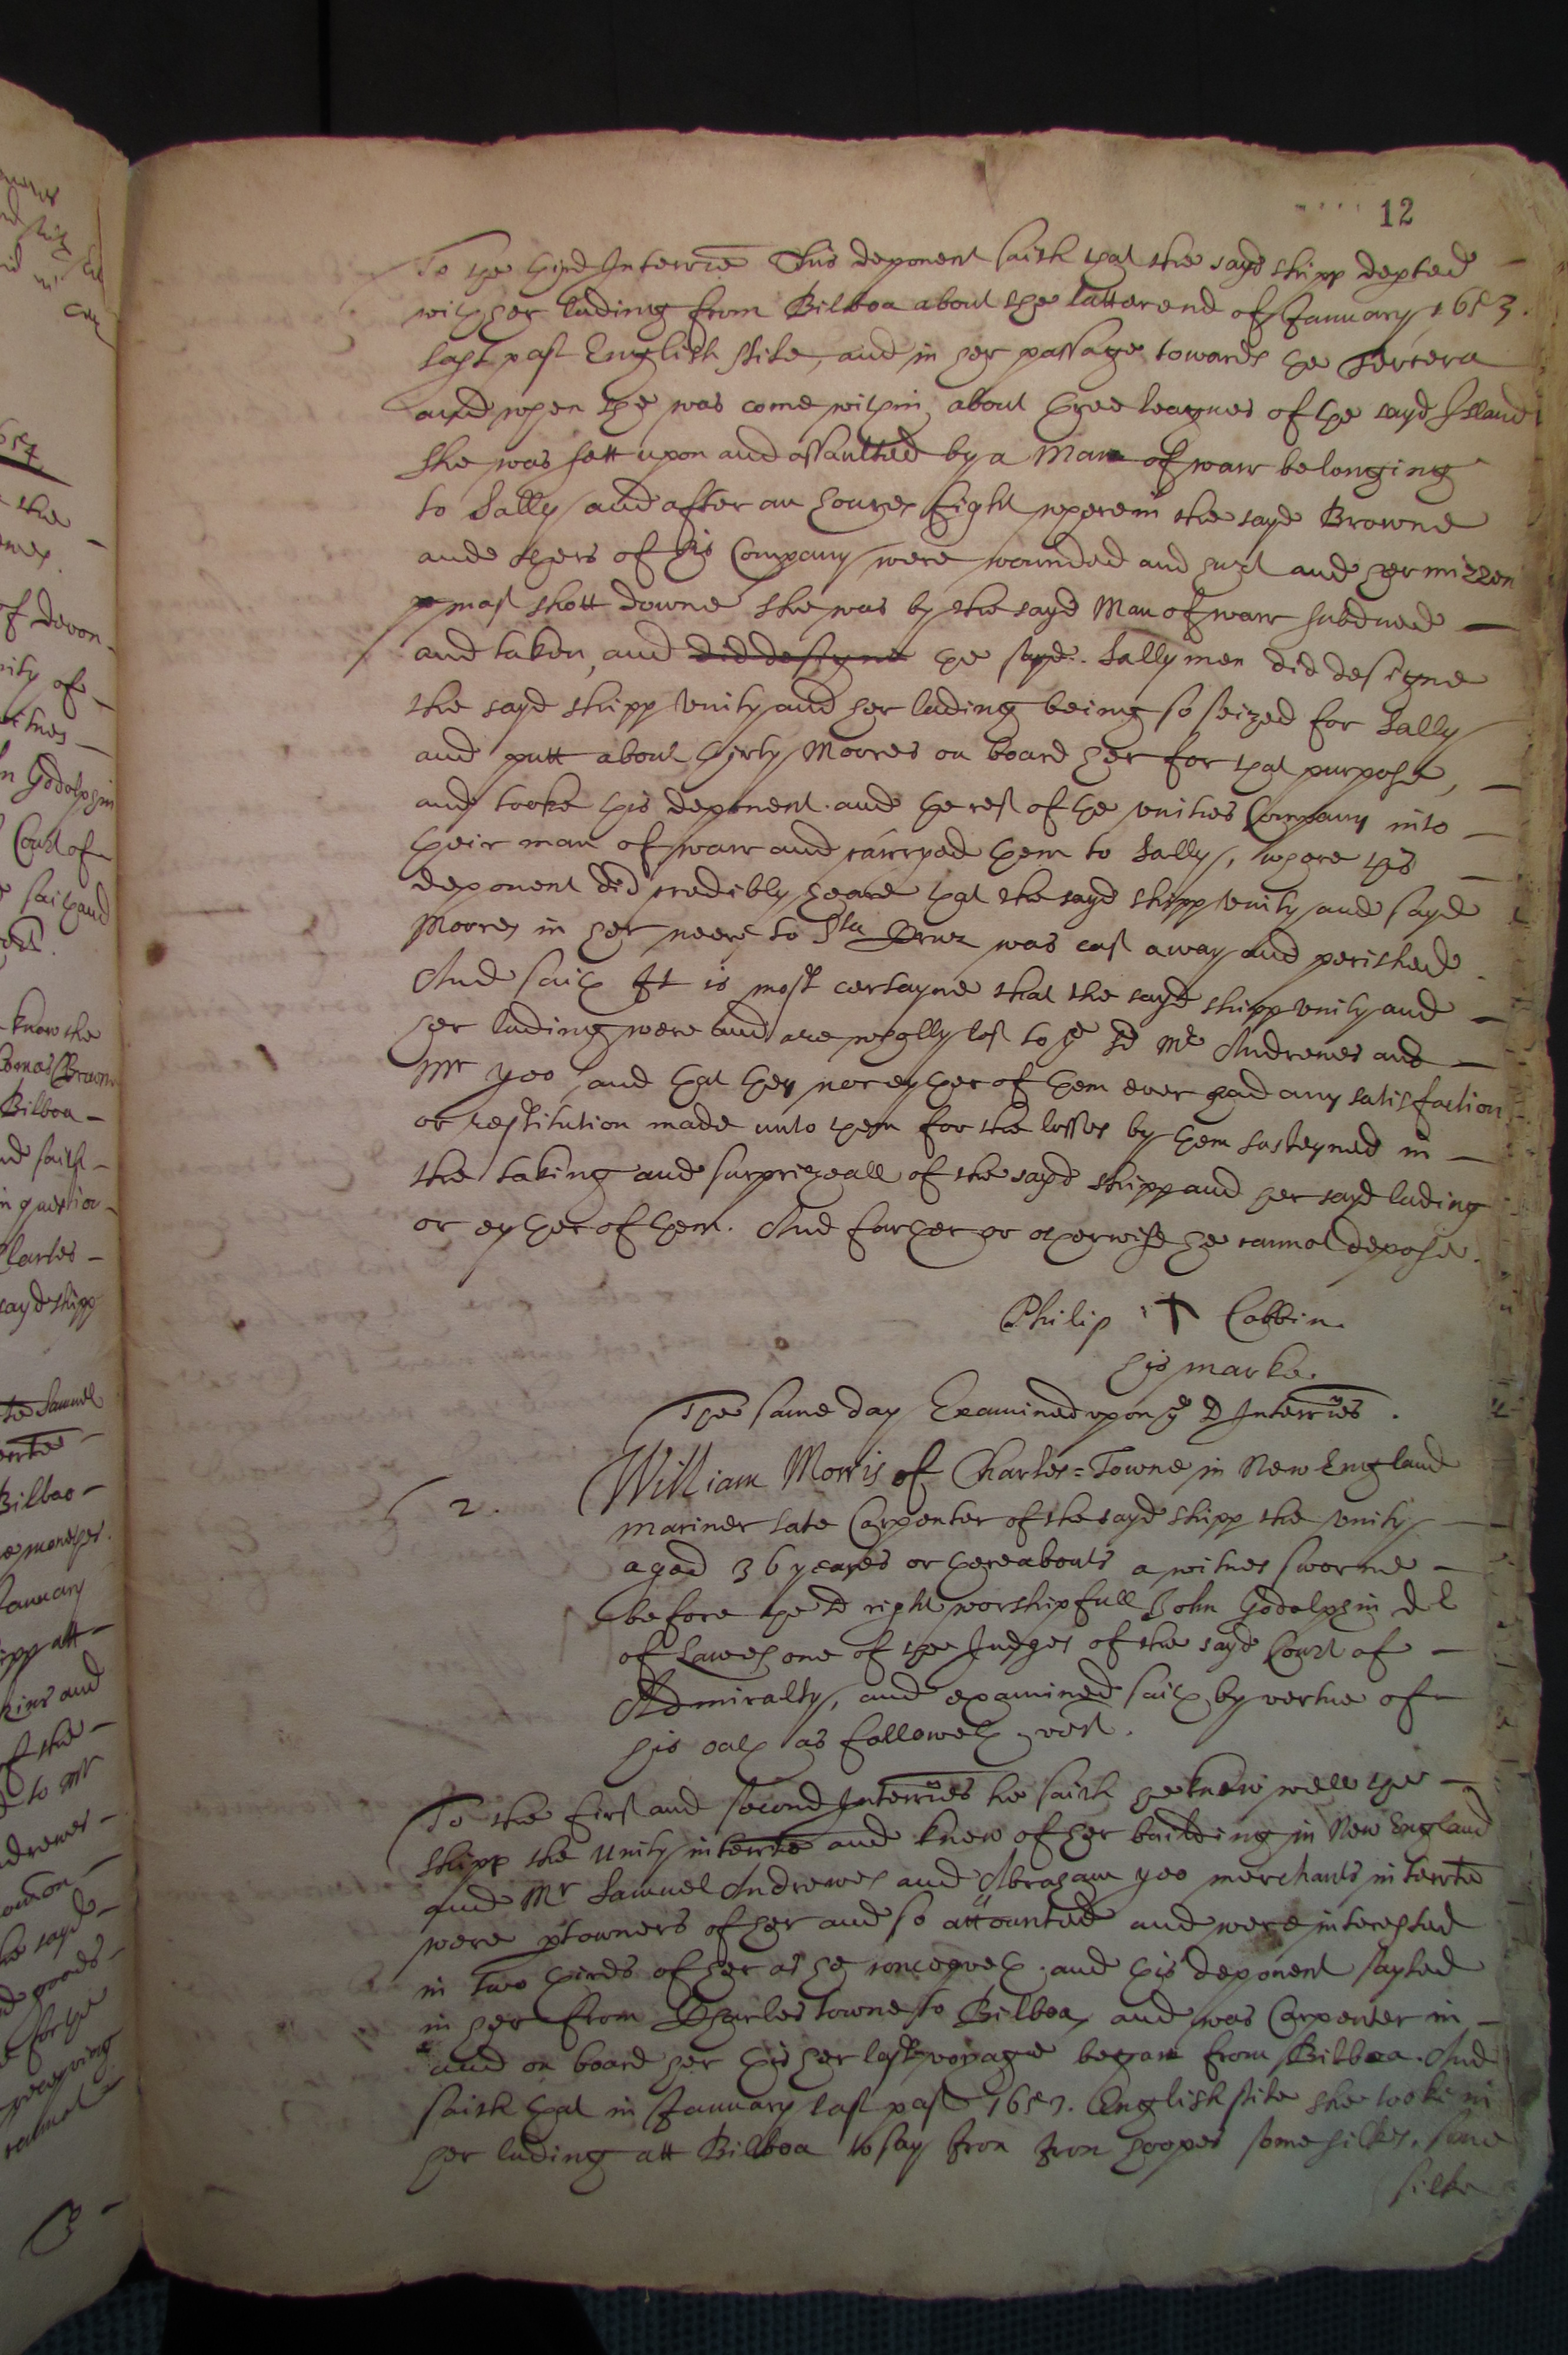 12
To the third Interrie This deponent saith that the sayd shipp depted
with her lading from Bilboa about the latter end of January 1653.
last past English stile, and in her passage towards the Tercera
and when she was come within about three leagues of the sayd Island
she was sett upon and assaulted by a Man of warr belonging
to Sally and after an houres fight wherein the sayd Browne
and others of his Company were wounded and hurt and her mizzen
mast shott downe she was by the sayd Man of warr subdued
and taken, and did designe the sayd Sally men did designe
the sayd shipp Unity and her lading being so seized for Sally
and putt about thirty Moores on board her for that purpose,
and tooke this deponent and the rest of the Unities Company into
their man of warr and carryed them to Sally, where this
deponent did credibly heare that the sayd shipp Unity and sayd
Moores in her neere to Sta Cruz was cast away and perished.
And saith It is most certayne that the sayd shipp Unity and
her lading were and are wholly lost to ye sd Mr Andrewes and
Mr Yeo, and that they nor eyther of them ever had any satisfaction
or restitution made unto them for the losses by them susteyned in
the taking and surprizeall of the sayd shipp and her sayd lading
or eyther of them. And farther or otherwise he cannot depose.
Philip + Cobbin.
his marke.
The same day Examined upon ye sd Interries.
2.
William Morris of Charles=Towne in New England
mariner late Carpenter of the sayd shipp the Unity
aged 36 yeares or thereabouts a witnes sworne
before the sd right worshipfull John Godolphin d l
of Lawes one of the Judges of the sayd Court of
Admiralty, and examined saith by vertue of
his oath as followeth, vizt.
To the first and second Interries he saith he knew well the
shipp the Unity interrte and knew of her building in New England
and Mr Samuel Andrewes and Abraham Yeo merchants interrte
were ptowners of her and so accounted and were interested
in two thirds of her as he conceiveth. and this deponent sayled
in her from Charlestowne to Bilboa, and was Carpenter in
and on board her this her last voyage began from Bilboa. And
saith that in January last past 1653. English stile she tooke in
her lading att Bilboa to say Iron Iron hoopes some silkes, some
silke